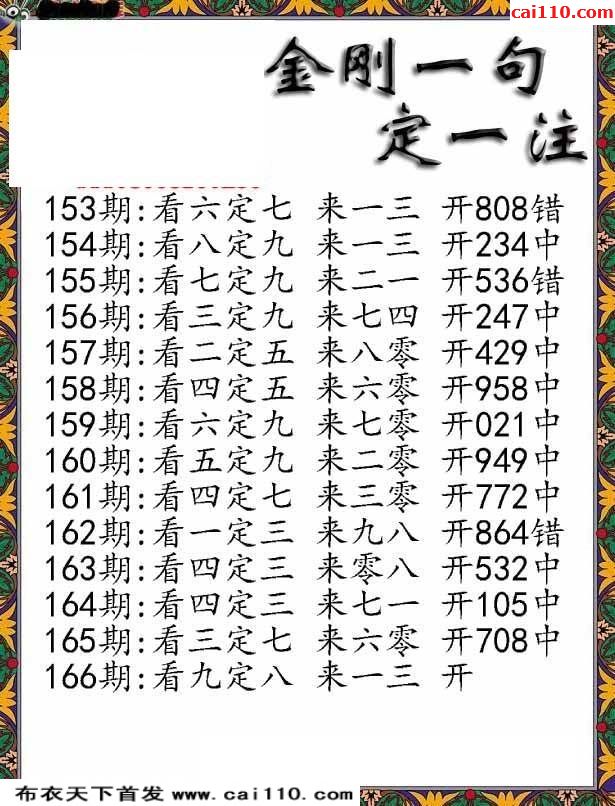 cai110.com
金刚一句
定一注
153期:看六定七 来一三 开808错
154期:看八定九 来一三 开234中
155期:看七定九 来二一 开536错
156期:看三定九 来七四 开247中
157期:看二定五 来八零 开429中
158期:看四定五 来六零 开958中
159期:看六定九 来七零 开021中
160期:看五定九 来二零 开949中
161期:看四定七 来三零 开772中
162期:看一定三 来九八 开864错
163期:看四定三 来零八 开532中
164期:看四定三 来七一 开105中
165期:看三定七 来六零 开708中
166期:看九定八 来一三 开
布衣天下首发 www.cai110.com